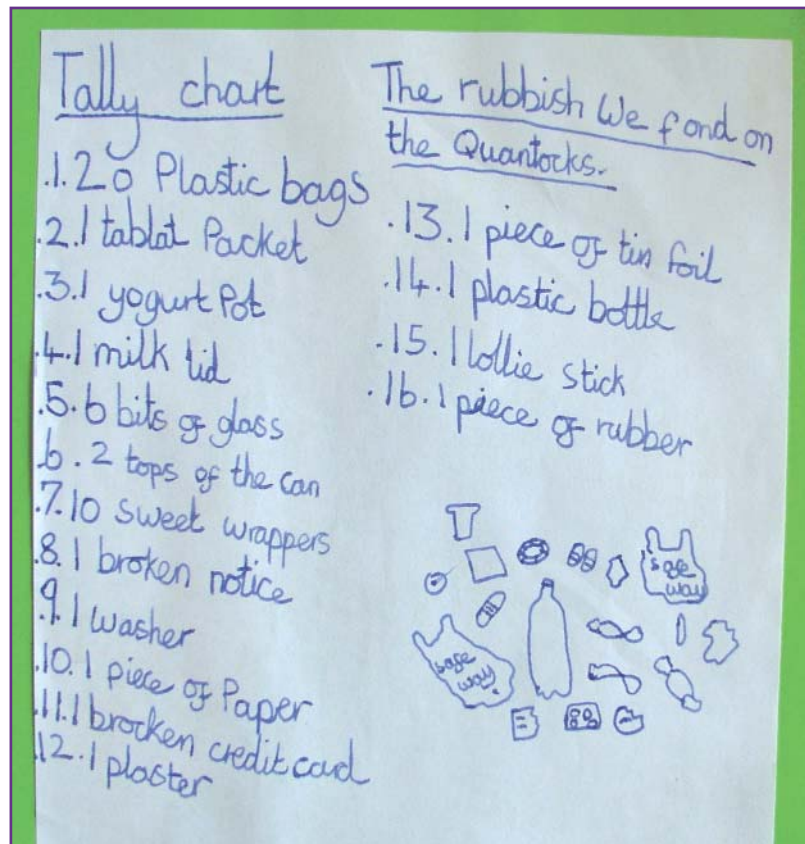 Tally chart
.1.20 Plastic bags
.2.1 tablat Packet
.3.1 yogurt Pot
.4.1 milk lid
.5.6 bits of glass
.6.2 tops of the can
.7.10 sweet wrappers
.8.1 broken notice
.9.1 washer
.10.1 piece of Paper
.11.1 brocken credit card
.12.1 plaster
The rubbish We fond on
the Quantocks.
.13.1 piece of tin foil
.14.1 plastic bottle
.15.1 lollie stick
.16.1 piece of rubber
safe
way
safe
way